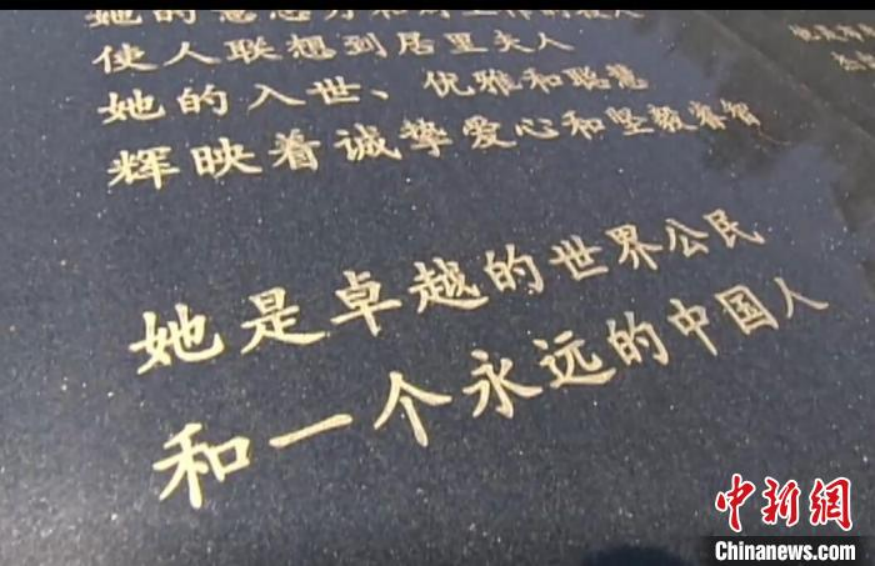 她的
使人联想到居里夫人
她的入世、优雅和聪慧
辉映着诚挚爱心和坚毅睿智
她是卓越的世界公民
和一个永远的中国人
中新網
Chinanews.com